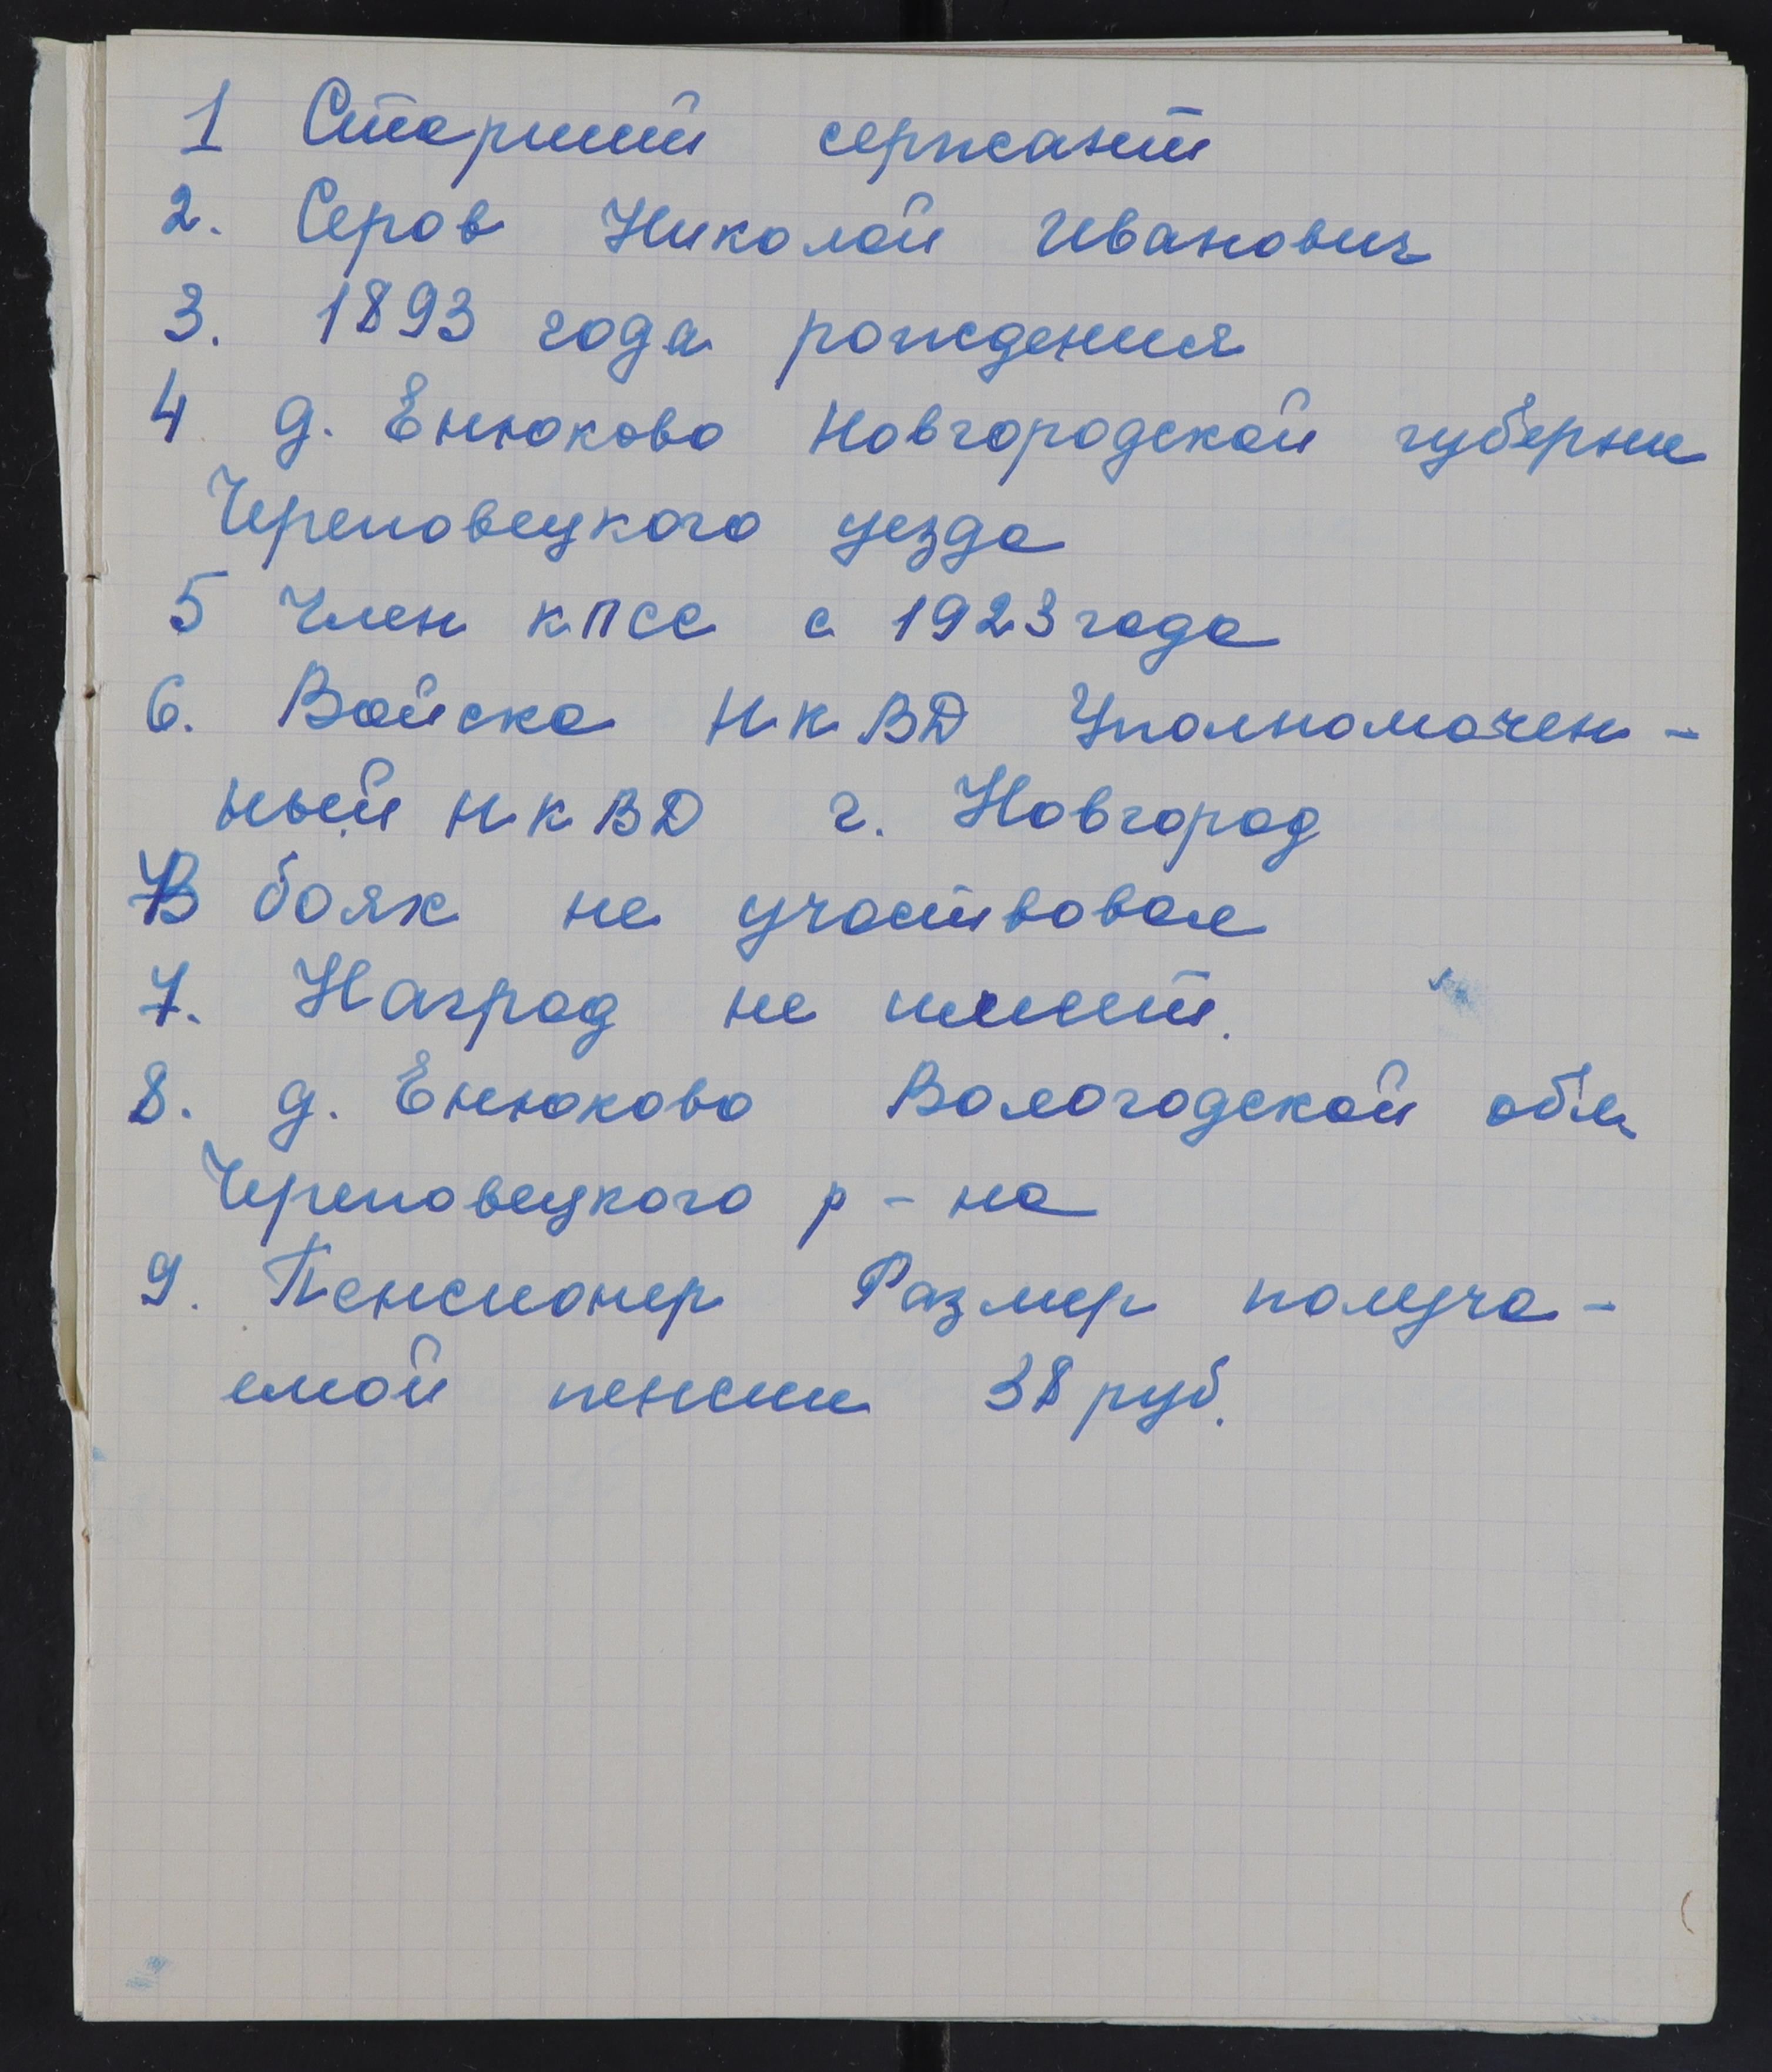 1 Старший сержант
2. Серов Николай Иванович
3. 1893 года рождения
4 д. Енюково Новгородской губерни
Череповецкого уезда
5 Член КПСС с 1923 года
6. Войска НКВД Уполномочен-
ный НКВД г. Новгород
В боях не участвовал
7. Наград не имеет.
8. д. Енюково Вологодской обл
Череповецкого р-на
9. Пенсионер Размер получа-
емой пенсии 38 руб.